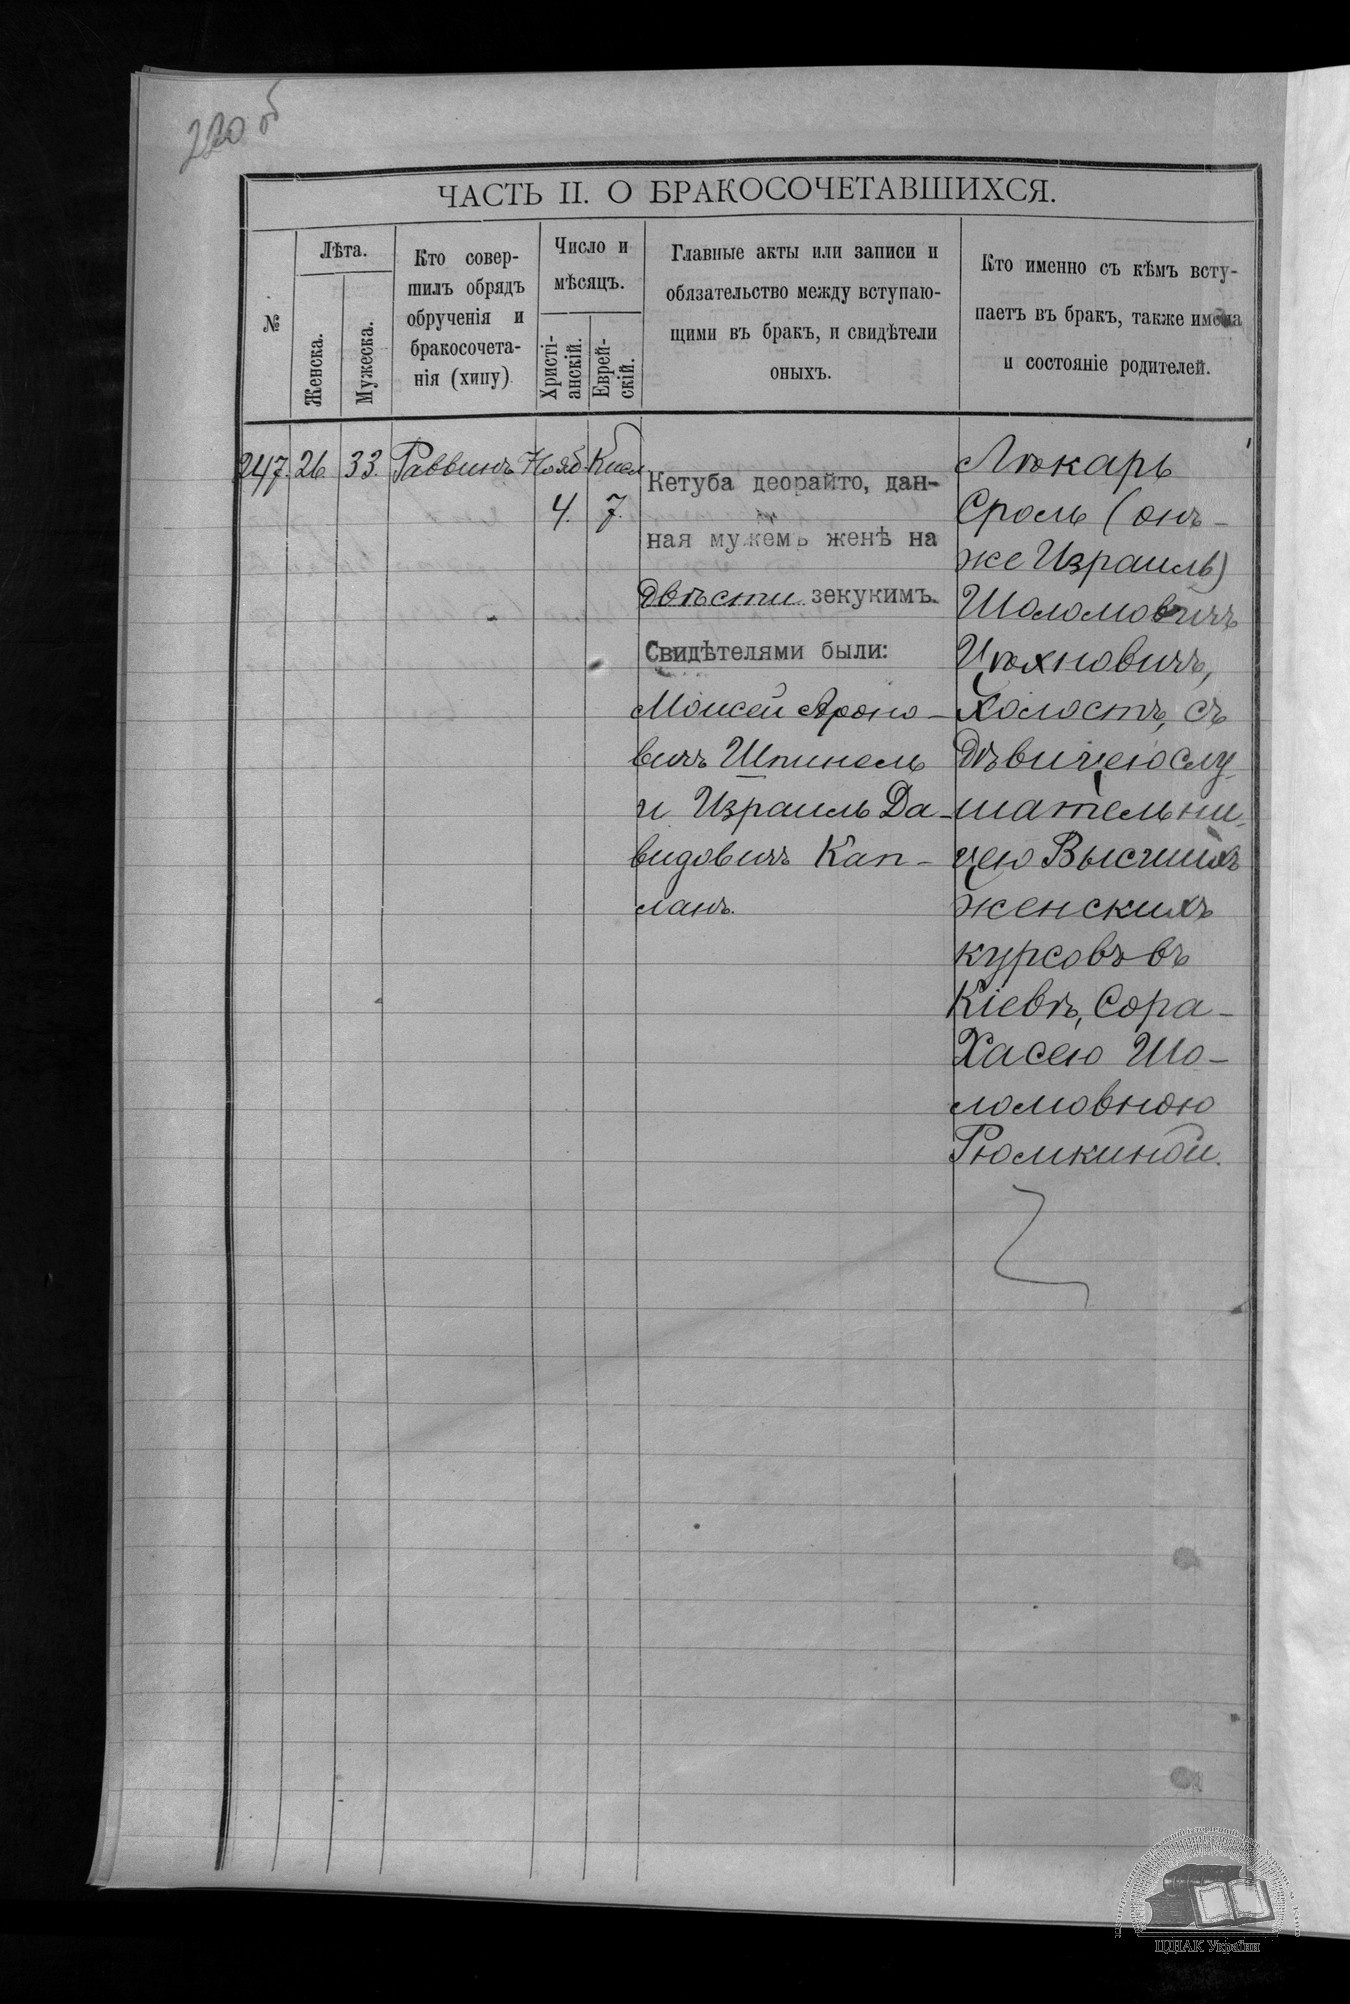 220 об
ЧАСТЬ II. О БРАКОСОЧЕТАВШИХСЯ.
№
Лѣта.
Женска.
Мужеска.
Кто совер-
шилъ обрядъ
обрученія и
бракосочета-
нія (хипу)
Число и
мѣсяцъ.
Христі-
анскій.
Еврей-
скій.
Главные акты или записи и
обязательство между вступаю-
щими въ бракъ, и свидѣтели
оныхъ.
Кто именно съ кѣмъ всту-
паетъ въ бракъ, также имена
и состояніе родителей.
247. 26. 33. Раввинъ Нояб. Кисл.
4. 7.
Кетуба деорайто, дан-
ная мужемъ женѣ на
двѣсти зекукимъ.
Свидѣтелями были:
Моисей Ароно-
вичъ Шпинель
и Израиль Да-
видовичъ Кап-
ланъ.
Лѣкарь
Сроль (онъ-
же Израиль)
Шоломовичъ
Цѣхновичъ,
холостъ, съ
дѣвицею слу-
шательни-
цею Высшихъ
женскихъ
курсовъ въ
Кіевѣ, Сора-
Хасею Шо-
ломовною
Рюмкиной.
ЦДІАК України